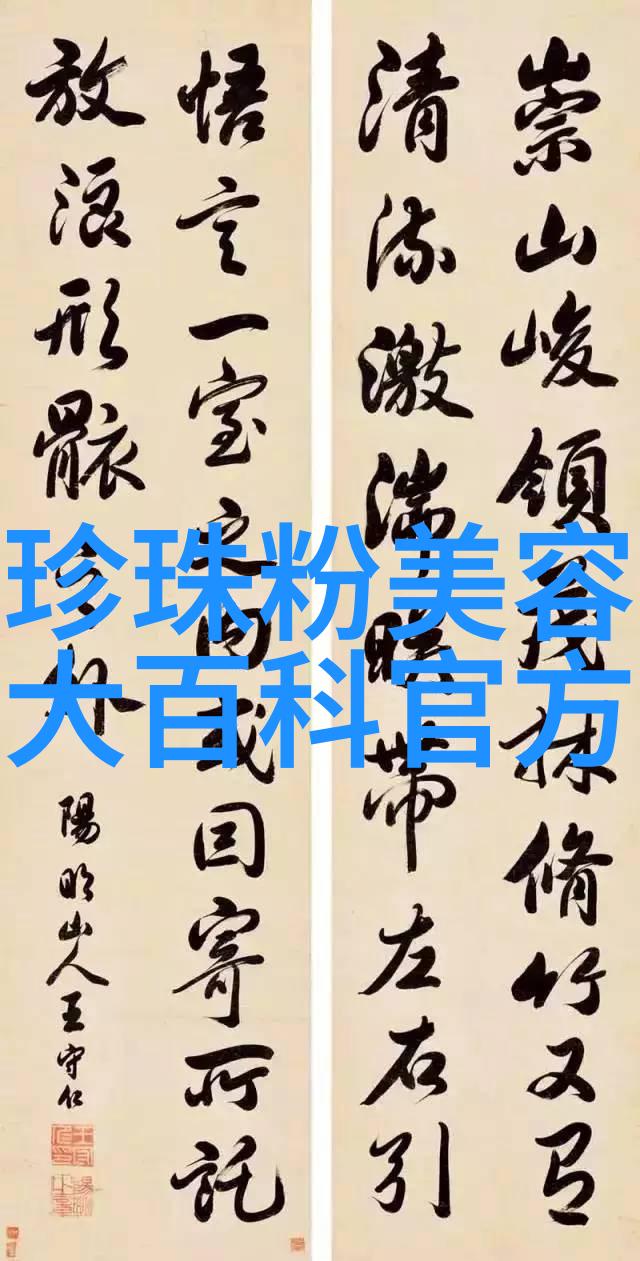 珍珠粉美容
大百科官方
崇山峻領茂林脩竹又有
清流激湍暎帶左右引
悟言一室之内或因寄所託
放浪形骸之外
陽明山人王守仁